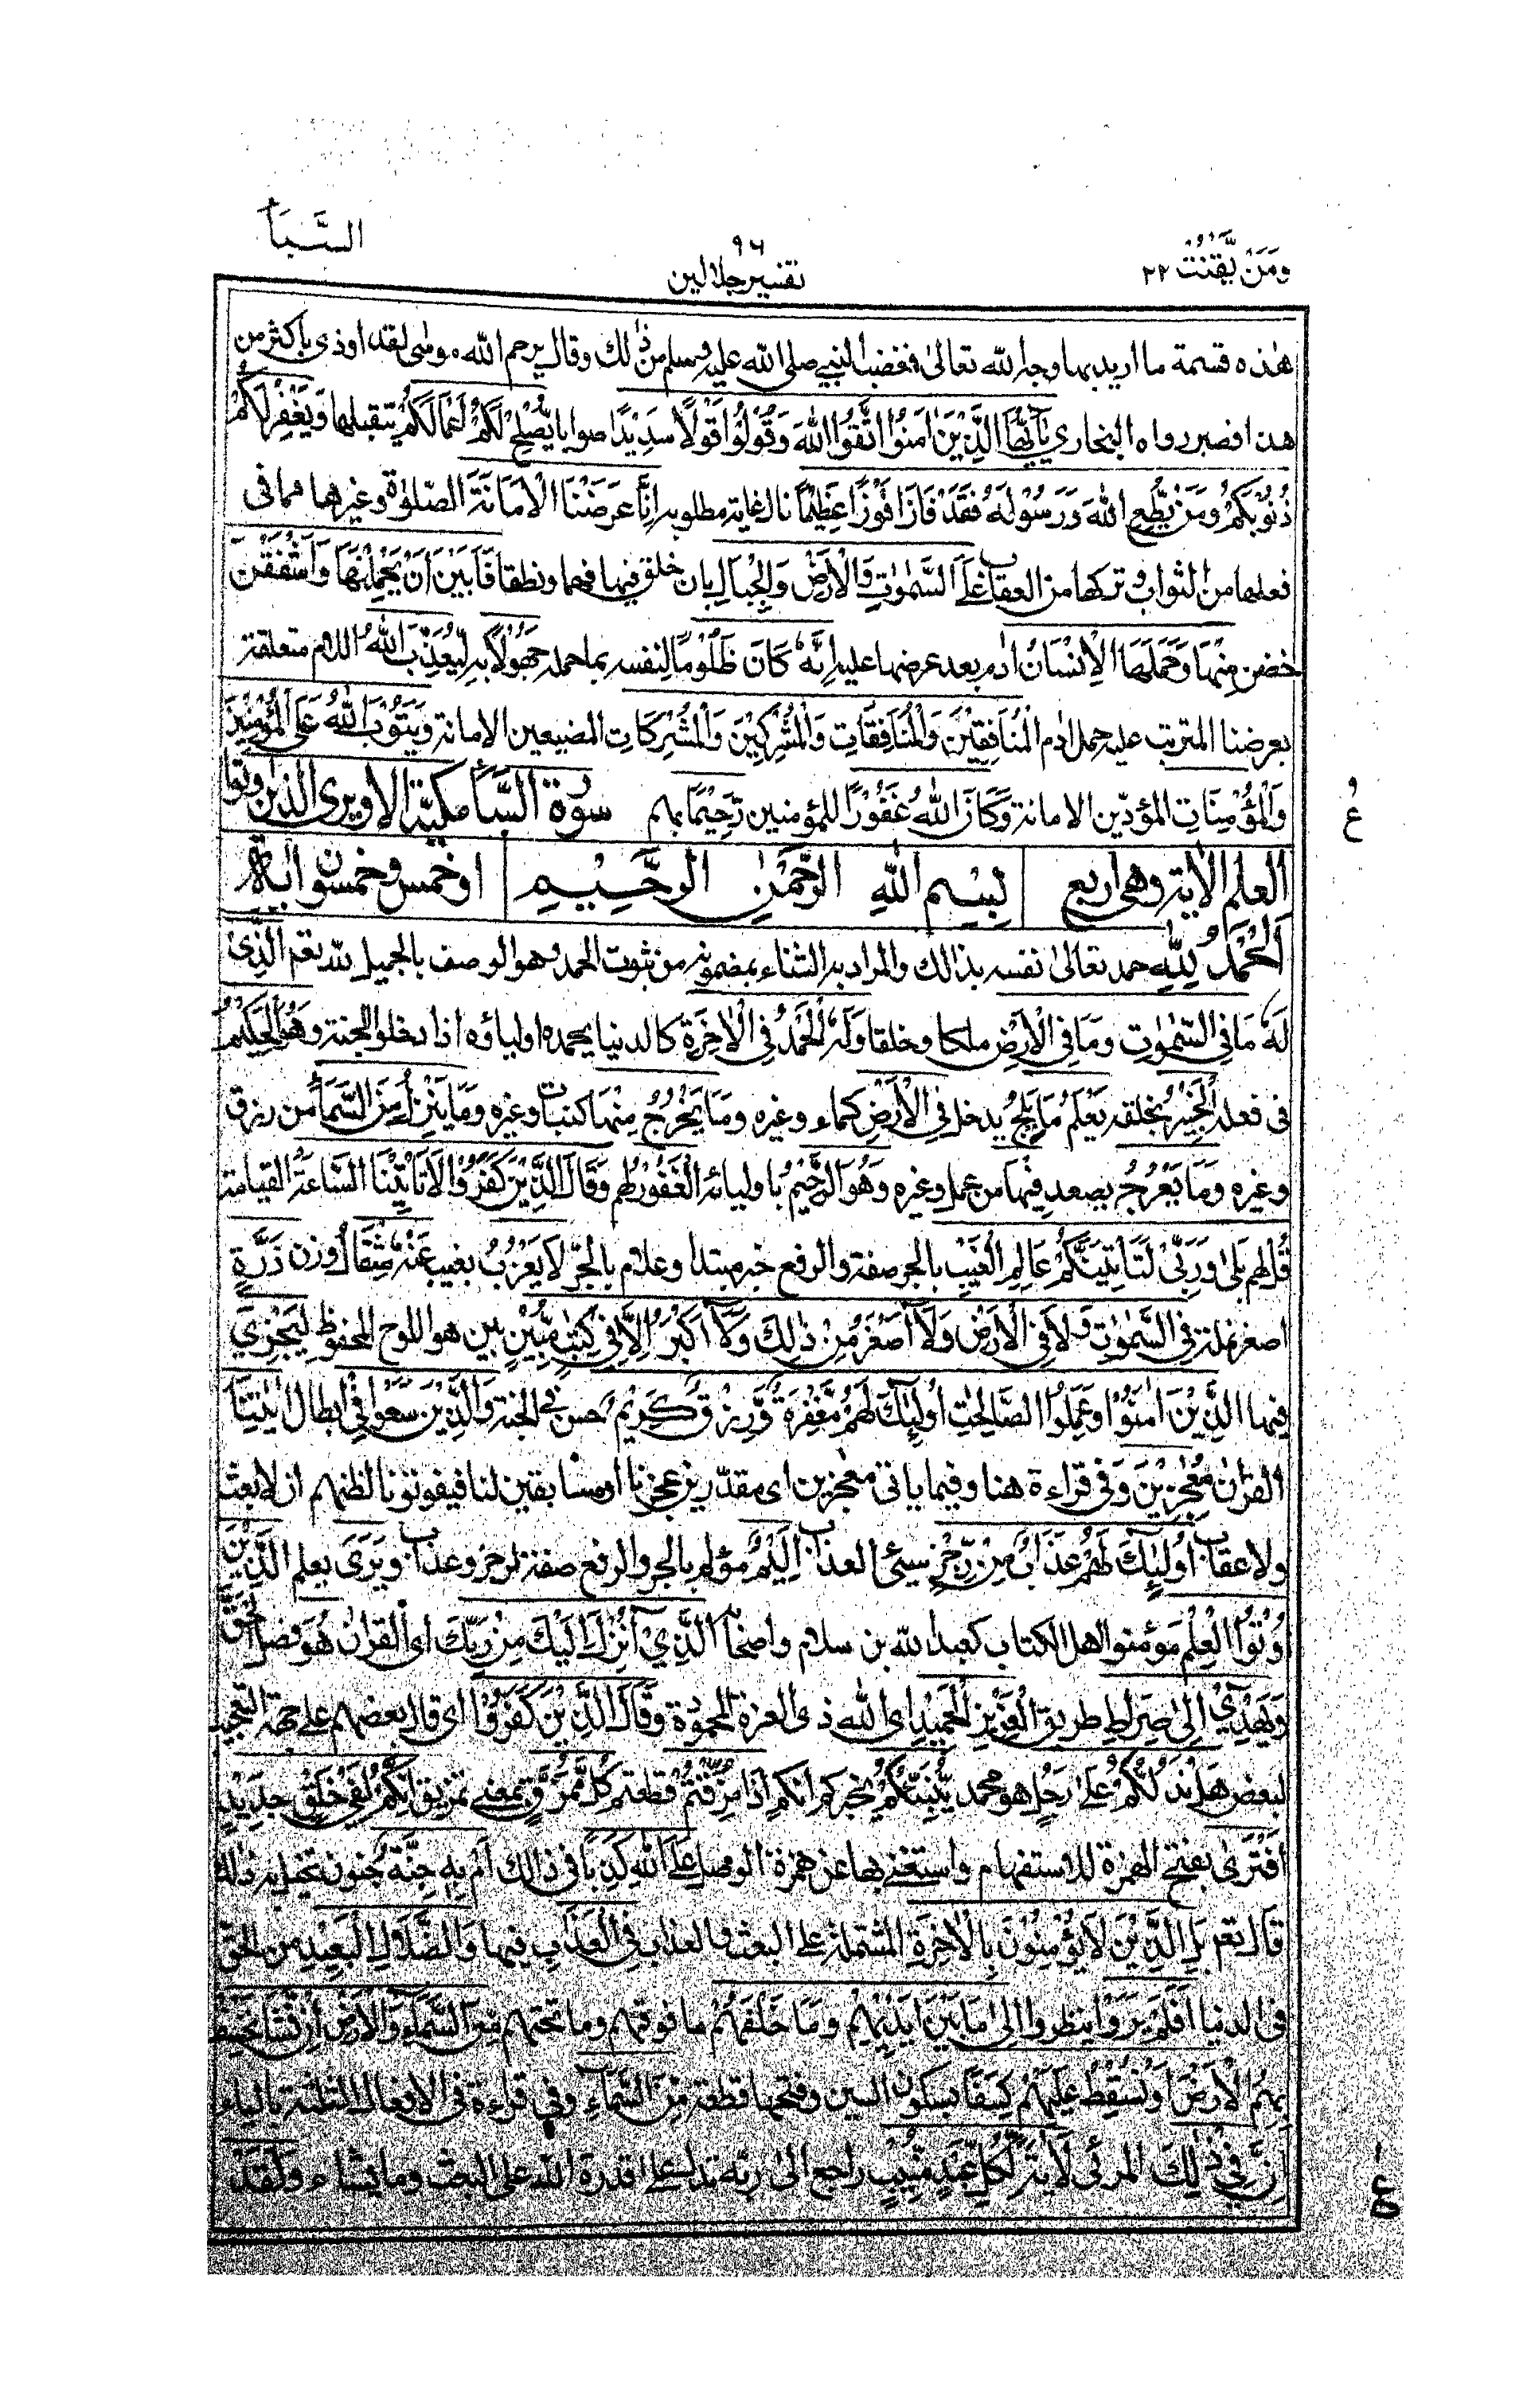 ومَنْ يَّقْنُتْ ٢٢
٩٦
السَّبَا
تفسير جلالين
هٰذه قسمة ما اريد بها وجه الله تعالىٰ فغضب النبي صلى الله عليه وسلم من ذٰلك وقال يرحم الله موسٰى لقد اوذى باكثر من
هذا فصبر رواه البخاري يٰٓاَيُّهَا الَّذِيْنَ اٰمَنُوا اتَّقُوا اللّٰهَ وَقُوْلُوْا قَوْلًا سَدِيْدًا صوابا يُّصْلِحْ لَكُمْ اَعْمَالَكُمْ يتقبلها وَيَغْفِرْ لَكُمْ
ذُنُوْبَكُمْ وَمَنْ يُّطِعِ اللّٰهَ وَرَسُوْلَهٗ فَقَدْ فَازَ فَوْزًا عَظِيْمًا نال غاية مطلوبه اِنَّا عَرَضْنَا الْاَمَانَةَ الصلوٰة وغيرها مما فى
فعلها من الثواب وتركها من العقاب عَلَى السَّمٰوٰتِ وَالْاَرْضِ وَالْجِبَالِ بان خلق فيها فهما ونطقا فَاَبَيْنَ اَنْ يَّحْمِلْنَهَا وَاَشْفَقْنَ
خفن مِنْهَا وَحَمَلَهَا الْاِنْسَانُ اٰدم بعد عرضها عليه اِنَّهٗ كَانَ ظَلُوْمًا لنفسه بما حمله جَهُوْلًا به لِّيُعَذِّبَ اللّٰهُ اللام متعلقة
بعرضنا المترتب عليه حمل اٰدم الْمُنَافِقِيْنَ وَالْمُنَافِقَاتِ وَالْمُشْرِكِيْنَ وَالْمُشْرِكَاتِ المضيعين الامانة وَيَتُوْبَ اللّٰهُ عَلَى الْمُؤْمِنِيْنَ
وَالْمُؤْمِنَاتِ المؤدّين الامانة وَكَانَ اللّٰهُ غَفُوْرًا للمؤمنين رَّحِيْمًا بهم سورة السبا مكيّة الا ويرى الذين اوتوا
العلم الاٰية وهى اربع بِسْمِ اللّٰهِ الرَّحْمٰنِ الرَّحِيْمِ او خمس وخمسون اٰية
اَلْحَمْدُ لِلّٰهِ حمد تعالىٰ نفسه بذالك والمراد به الثناء بمضمونه من ثبوت الحمد وهو الوصف بالجميل لله تعم الَّذِىْ
لَهٗ مَا فِى السَّمٰوٰتِ وَمَا فِى الْاَرْضِ ملكا وخلقا وَلَهُ الْحَمْدُ فِى الْاٰخِرَةِ كالدنيا يحمده اولياؤه اذا دخلوا الجنة وَهُوَ الْحَكِيْمُ
فى فعله الْخَبِيْرُ بخلقه يَعْلَمُ مَا يَلِجُ يدخل فِى الْاَرْضِ كماء وغيره وَمَا يَخْرُجُ مِنْهَا كنبات وغيره وَمَا يَنْزِلُ مِنَ السَّمَآءِ من رزق
وغيره وَمَا يَعْرُجُ يصعد فِيْهَا من عمل وغيره وَهُوَ الرَّحِيْمُ باوليائه الْغَفُوْرُ لهم وَقَالَ الَّذِيْنَ كَفَرُوْا لَا تَاْتِيْنَا السَّاعَةُ القيامة
قُلْ لهم بَلٰى وَرَبِّىْ لَتَاْتِيَنَّكُمْ عَالِمِ الْغَيْبِ بالجر صفة والرفع خبر مبتدا وعلام بالجر لَا يَعْزُبُ يغيب عَنْهُ مِثْقَالُ وزن ذَرَّةٍ
اصغر نملة فِى السَّمٰوٰتِ وَلَا فِى الْاَرْضِ وَلَآ اَصْغَرُ مِنْ ذٰلِكَ وَلَآ اَكْبَرُ اِلَّا فِىْ كِتٰبٍ مُّبِيْنٍ بين هو اللوح المحفوظ لِّيَجْزِىَ
فيها الَّذِيْنَ اٰمَنُوْا وَعَمِلُوا الصّٰلِحٰتِ اُولٰٓئِكَ لَهُمْ مَّغْفِرَةٌ وَّرِزْقٌ كَرِيْمٌ حسن فى الجنة وَالَّذِيْنَ سَعَوْا فِىْ ابطال اٰيٰتِنَا
القراٰن مُعٰجِزِيْنَ وَفى قراءة هنا وفيما ياتى معٰجزين اى مقدّرين عجزنا او مسابقين لنا فيفوتونا لظنهم ان لا بعث
ولا عقاب اُولٰٓئِكَ لَهُمْ عَذَابٌ مِّنْ رِّجْزٍ سيئ العذاب اَلِيْمٌ مؤلم بالجر والرفع صفة لرجز وعذاب وَيَرَى يعلم الَّذِيْنَ
اُوْتُوا الْعِلْمَ مؤمنوا اهل الكتاب كعبد الله بن سلام واصحابه الَّذِىْٓ اُنْزِلَ اِلَيْكَ مِنْ رَّبِّكَ اى القراٰن هُوَ فصل الْحَقَّ
وَيَهْدِىْٓ اِلٰى صِرَاطِ طريق الْعَزِيْزِ الْحَمِيْدِ اى الله ذى العزة المحمودة وَقَالَ الَّذِيْنَ كَفَرُوْا اى قال بعضهم على جهة التعجيب
لبعض هَلْ نَدُلُّكُمْ عَلٰى رَجُلٍ هو محمد يُّنَبِّئُكُمْ يخبركم انكم اِذَا مُزِّقْتُمْ قطعتم كُلَّ مُمَزَّقٍ بمعنى تمزيق اِنَّكُمْ لَفِىْ خَلْقٍ جَدِيْدٍ
اَفْتَرٰى بفتح الهمزة للاستفهام واستغنى بها عن همزة الوصل عَلَى اللّٰهِ كَذِبًا فى ذالك اَمْ بِهٖ جِنَّةٌ جنون تخيل به ذالك
قال تعم بَلِ الَّذِيْنَ لَا يُؤْمِنُوْنَ بِالْاٰخِرَةِ المشتملة على البعث والعذاب فِى الْعَذَابِ فيها وَالضَّلٰلِ الْبَعِيْدِ من الحق
فى الدنيا اَفَلَمْ يَرَوْا ينظروا اِلٰى مَا بَيْنَ اَيْدِيْهِمْ وَمَا خَلْفَهُمْ ما فوقهم وما تحتهم مِّنَ السَّمَآءِ وَالْاَرْضِ اِنْ نَّشَاْ نَخْسِفْ
بِهِمُ الْاَرْضَ اَوْ نُسْقِطْ عَلَيْهِمْ كِسَفًا بسكون السين وفتحها قطعة مِّنَ السَّمَآءِ وفى قراءة فى الافعال الثلثة بالياء
اِنَّ فِىْ ذٰلِكَ المرئى لَاٰيَةً لِّكُلِّ عَبْدٍ مُّنِيْبٍ راجع الىٰ ربّه تدل على قدرة الله على البعث وما يشاء وَلَقَدْ
ع
ع